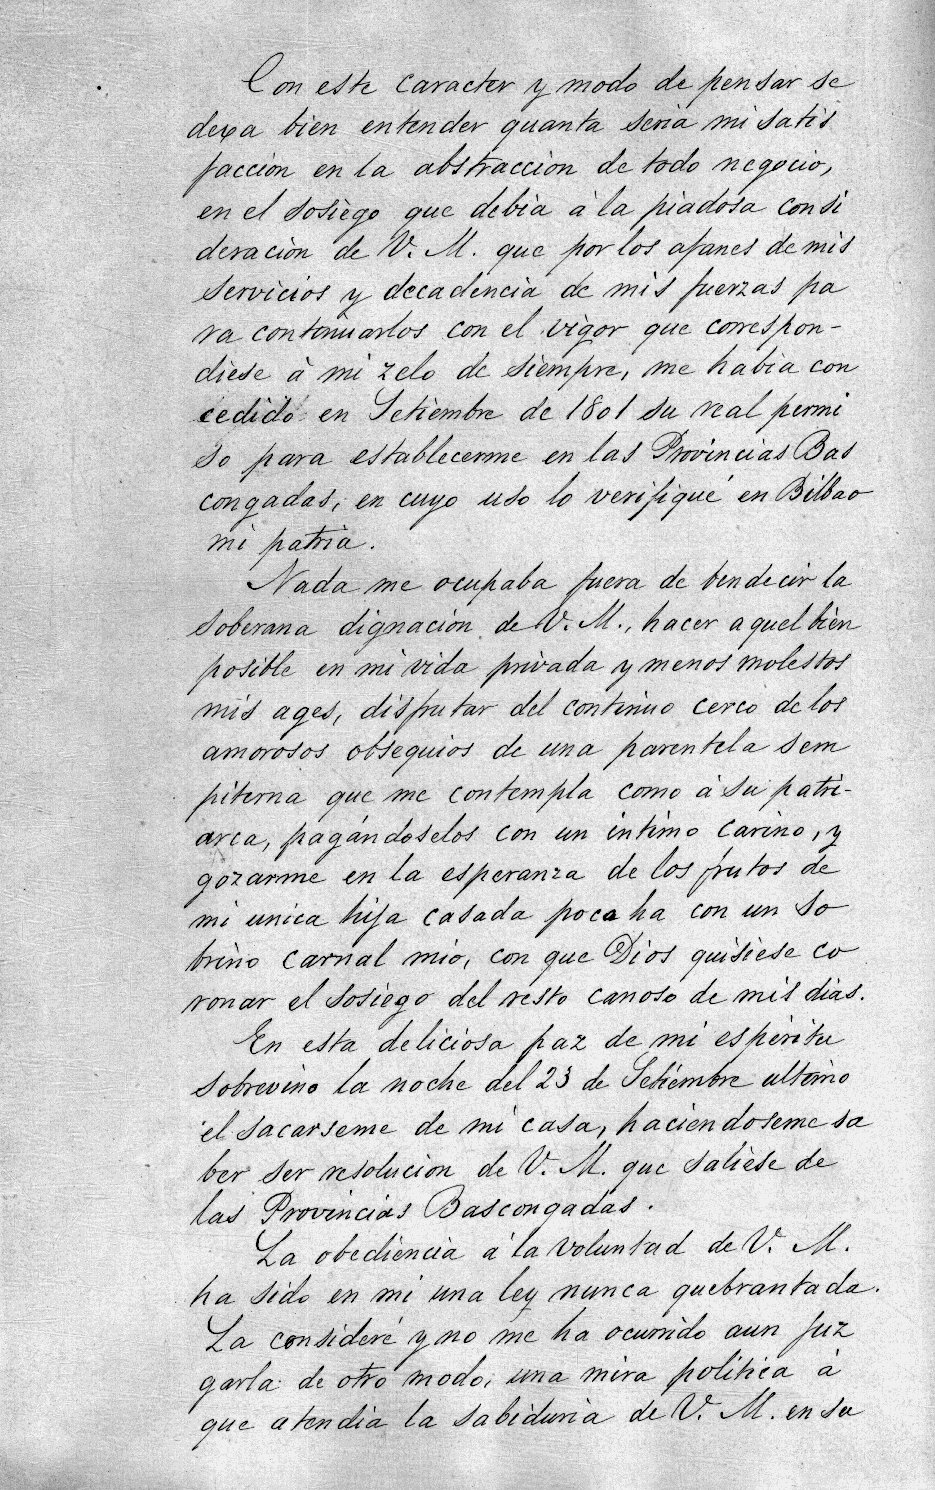 Con este caracter y modo de pensar se
dexa bien entender quanta seria mi satis
faccion en la abstraccion de todo negocio,
en el sosiego que debia á la piadosa consi
deracion de V. M. que por los afanes de mis
servicios y decadencia de mis fuerzas pa
ra continuarlos con el vigor que correspon-
diese á mi zelo de siempre, me habia con
cedido en Setiembre de 1801 su real permi
so para establecerme en las Provincias Bas
congadas, en cuyo uso lo verifiqué en Bilbao
mi patria.
Nada me ocupaba fuera de bendecir la
soberana dignación de V. M., hacer aquel bien
posible en mi vida privada y menos molestos
mis ages, disfrutar del continuo cerco de los
amorosos obsequios de una parentela sem
piterna que me contempla como á su patri-
arca, pagándoselos con un intimo carino, y
gozarme en la esperanza de los frutos de
mi unica hija casada poco ha con un so
brino carnal mio, con que Dios quisiese co
ronar el sosiego del resto canoso de mis dias.
En esta deliciosa paz de mi espiritu
sobrevino la noche del 23 de Setiembre ultimo
el sacarseme de mi casa, haciendoseme sa
ber ser resolucion de V. M. que saliese de
las Provincias Bascongadas.
La obediencia á la voluntad de V. M.
ha sido en mi una ley nunca quebrantada.
La consideré y no me ha ocurrido aun juz
garla de otro modo, una mira politica á
que atendia la sabiduria de V. M. en su